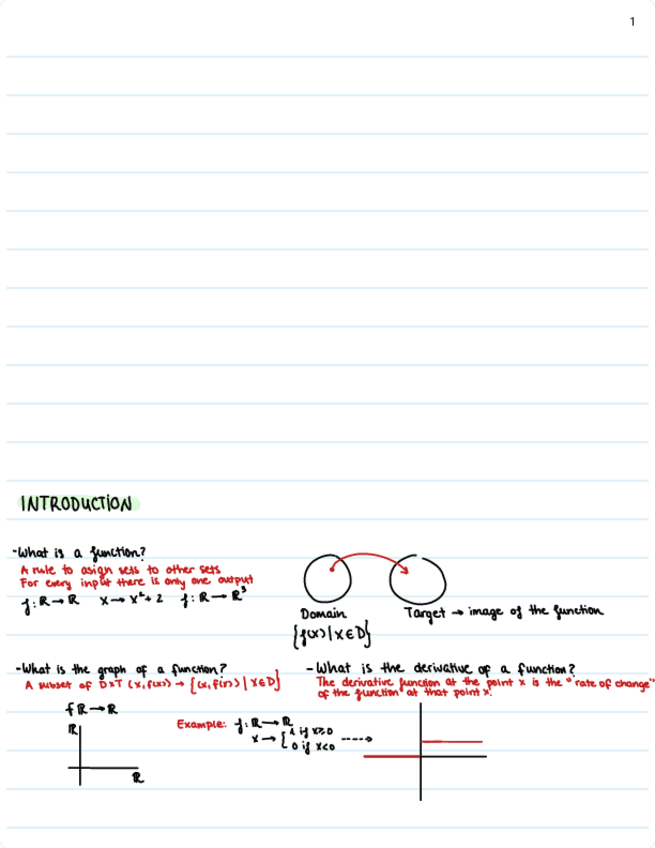 1
INTRODUCTION
-What is a function?
A rule to asign sets to other sets
For every input there is only one output
f: ℝ → ℝ x → x² + 2 f: ℝ → ℝ³
Domain
{f(x) | x ∈ D}
Target → image of the function
-What is the graph of a function?
A subset of D×T (x, f(x)) → {(x, f(x)) | x ∈ D}
f ℝ → ℝ
ℝ
ℝ
Example: f: ℝ → ℝ
x → { 1 if x ≥ 0
0 if x < 0
- What is the derivative of a function?
The derivative function at the point x is the "rate of change"
of the function at that point x.